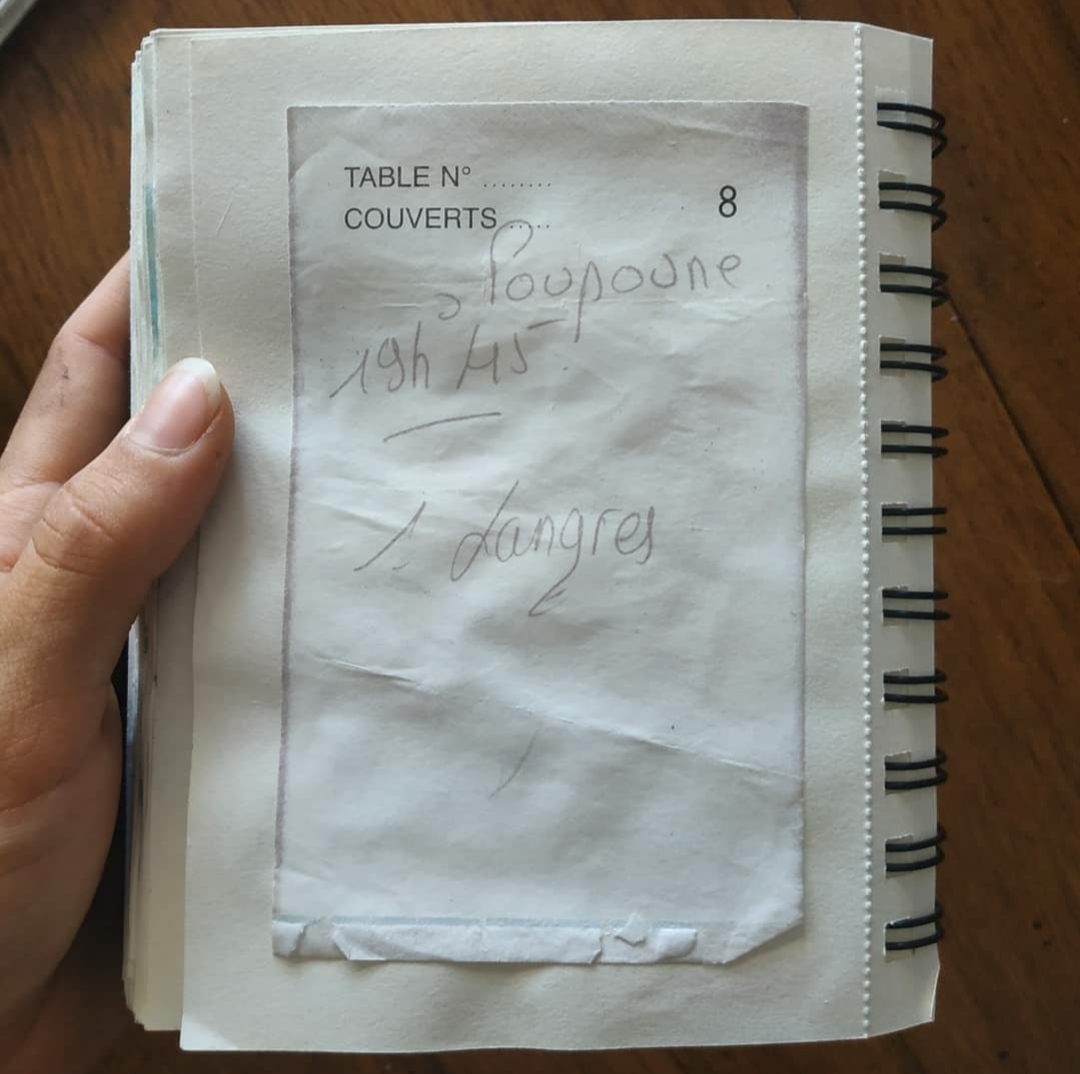 TABLE N° ........
COUVERTS .....
8
Poupoune
19h45
1 Langres